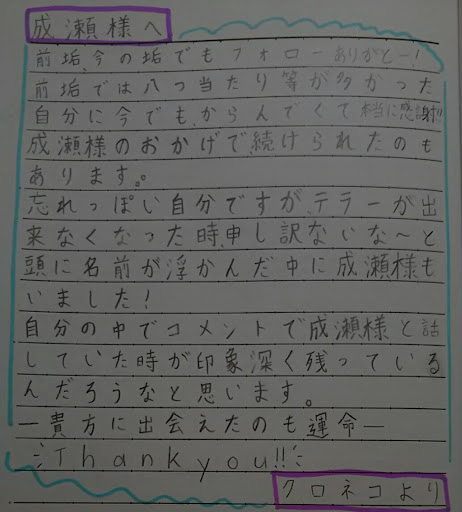 成瀬様へ
前垢、今の垢でもフォローありがとー!
前垢では八つ当たり等が多かった
自分に今でも、からんでくて本当に感謝!!
成瀬様のおかげで、続けられたのも
あります。
忘れっぽい自分ですが、テラーが出
来なくなった時、申し訳ないな〜と
頭に名前が浮かんだ中に成瀬様も
いました!
自分の中でコメントで成瀬様と話
していた時が印象深く残っている
んだろうなと思います。
ー貴方に出会えたのも運命ー
Thank you!!
クロネコより